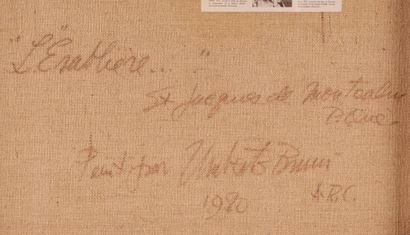 "L'Erablière... "
St Jacques de Montcalm
P. Que.
Peint par Umberto Bruni
1980 A.R.C.